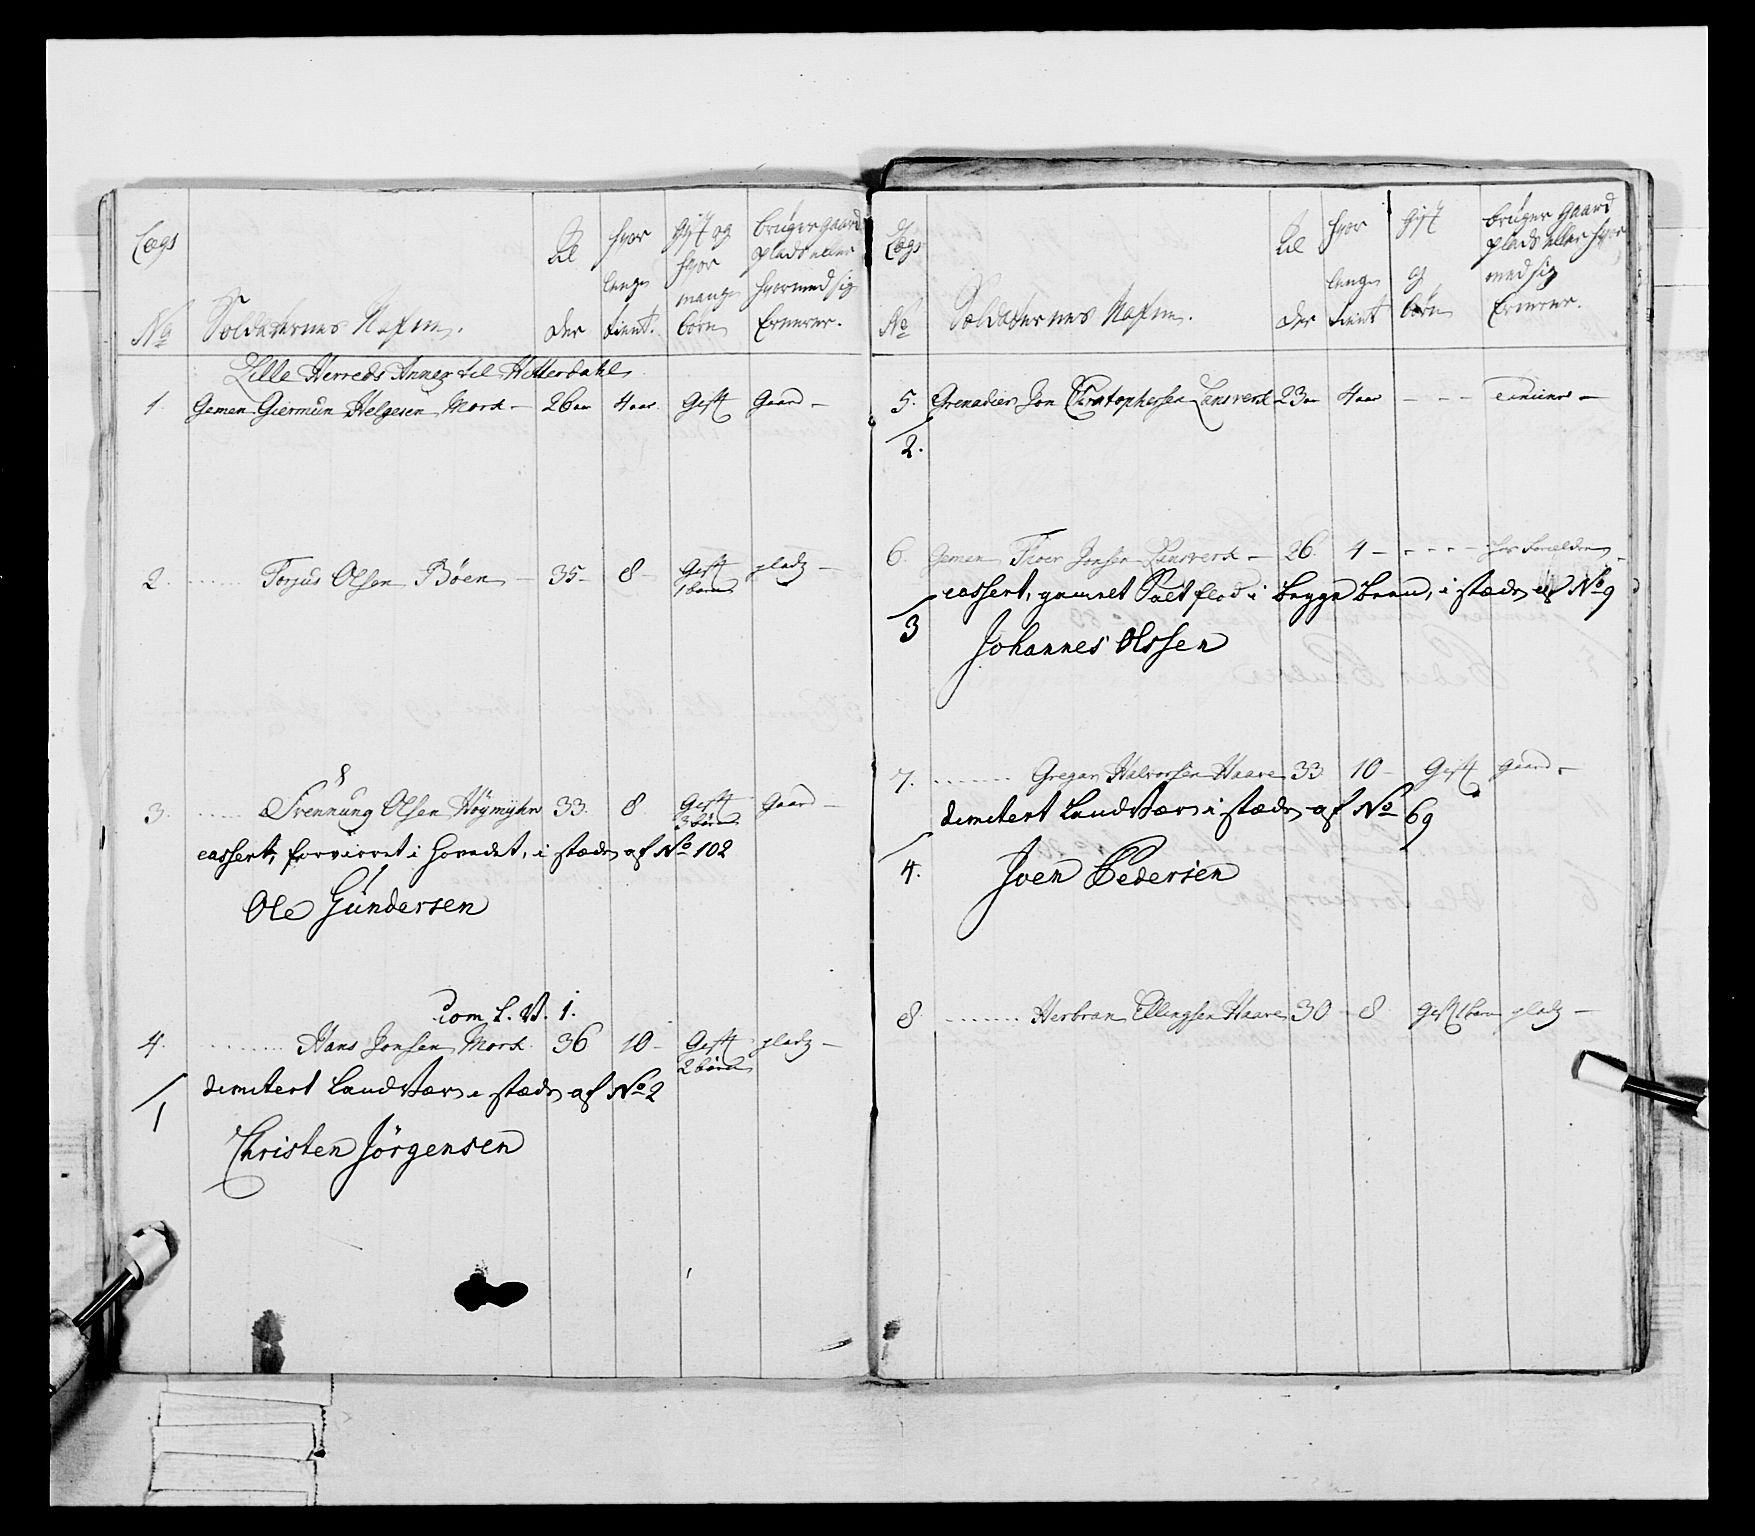 Lægs No
Soldaternes Nafne.
Al der
hvor lenge tient.
Gift og hvor mange börn
bruger gaard plads eller hvormed sig Ernerer.
Lille Herreds Annex til Hitterdahl
1. Gemen Giermun Helgesen Mork - 26 aar 4 aar Gift Gaard -
2. Torjus Olsen Böen - 35 - 8 - Gift 1 barn pladz -
8
3. Svennung Olsen Höymyhr 33. 8. Gift 3 börn Gaard -
cassert, forvirret i Hovedet, i stæden af No 102
Ole Gündersen
Com L. V. 1.
4. Hans Jonsen Mork 36 10 - Gift 2 börn pladz -
dimitert Landvær i stæden af No 2
1
Christen Jörgensen
Lægs No
Soldaternes Nafne.
Al der
hvor lenge tient
Gift og börn
bruger Gaard plads eller hvor med sig Ernerer.
5. Grenadier Jon Christophersen Lansverk 23 aar 4 aar - - - -
2.
6. Gemen Jonsen Lansverk - 26. 4 - - - - hos Forældrene
cassert, i begge been, i stæden af No 9
3
Johannes Olssen
7. Gregar Halvorsen Haave 33 10 - Gift Gaard -
dimitert Landvær i stæden af No 69
4.
Joen Pedersen
8. Herbran Ellingsen Haave 30 - 8 Gift 1 barn pladz -